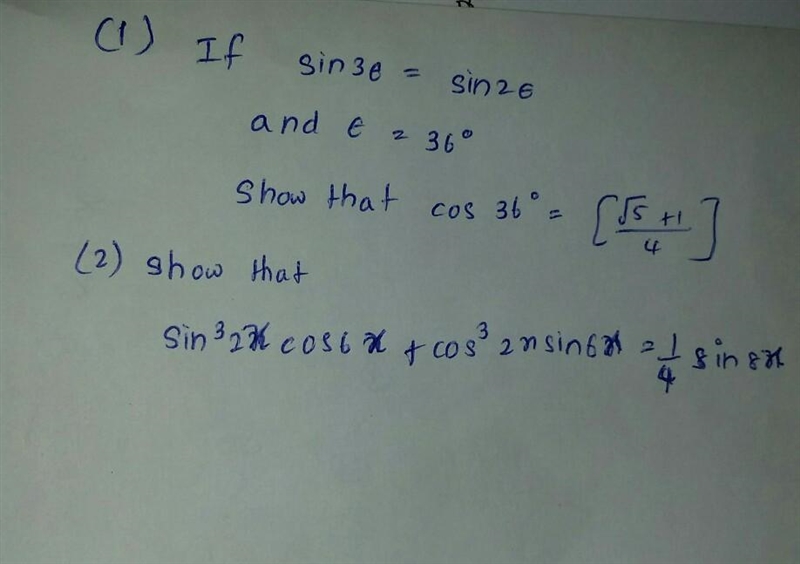 (1) If sin3θ = sin2θ
and θ = 36°
Show that cos 36° = [(√5 +1)/4]
(2) show that
sin³2x cos6x + cos³2x sin6x = 1/4 sin 8x